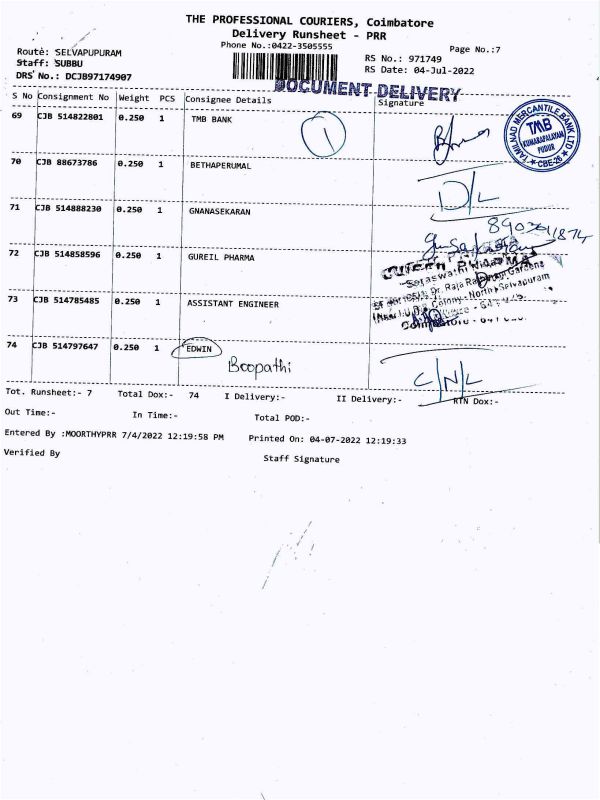 THE PROFESSIONAL COURIERS, Coimbatore
Delivery Runsheet - PRR
Phone No.:0422-3505555
Page No.:7
Route: SELVAPUPURAM
Staff: SUBBU
DRS No.: DCJB97174907
RS No.: 971749
RS Date: 04-Jul-2022
DOCUMENT DELIVERY
S No Consignment No Weight PCS Consignee Details Signature
69 CJB 514822801 0.250 1 TMB BANK
1
TAMILNAD MERCANTILE BANK LTD
TMB
KUMARAPALAYAM
PUDUR
CBE-26
70 CJB 88673786 0.250 1 BETHAPERUMAL
D/L
71 CJB 514888230 0.250 1 GNANASEKARAN
72 CJB 514858596 0.250 1 GUREIL PHARMA
73 CJB 514785485 0.250 1 ASSISTANT ENGINEER
74 CJB 514797647 0.250 1 EDWIN
Boopathi
C/N/L
Tot. Runsheet:- 7 Total Dox:- 74 I Delivery:- II Delivery:- RTN Dox:-
Out Time:- In Time:- Total POD:-
Entered By :MOORTHYPRR 7/4/2022 12:19:58 PM Printed On: 04-07-2022 12:19:33
Verified By Staff Signature